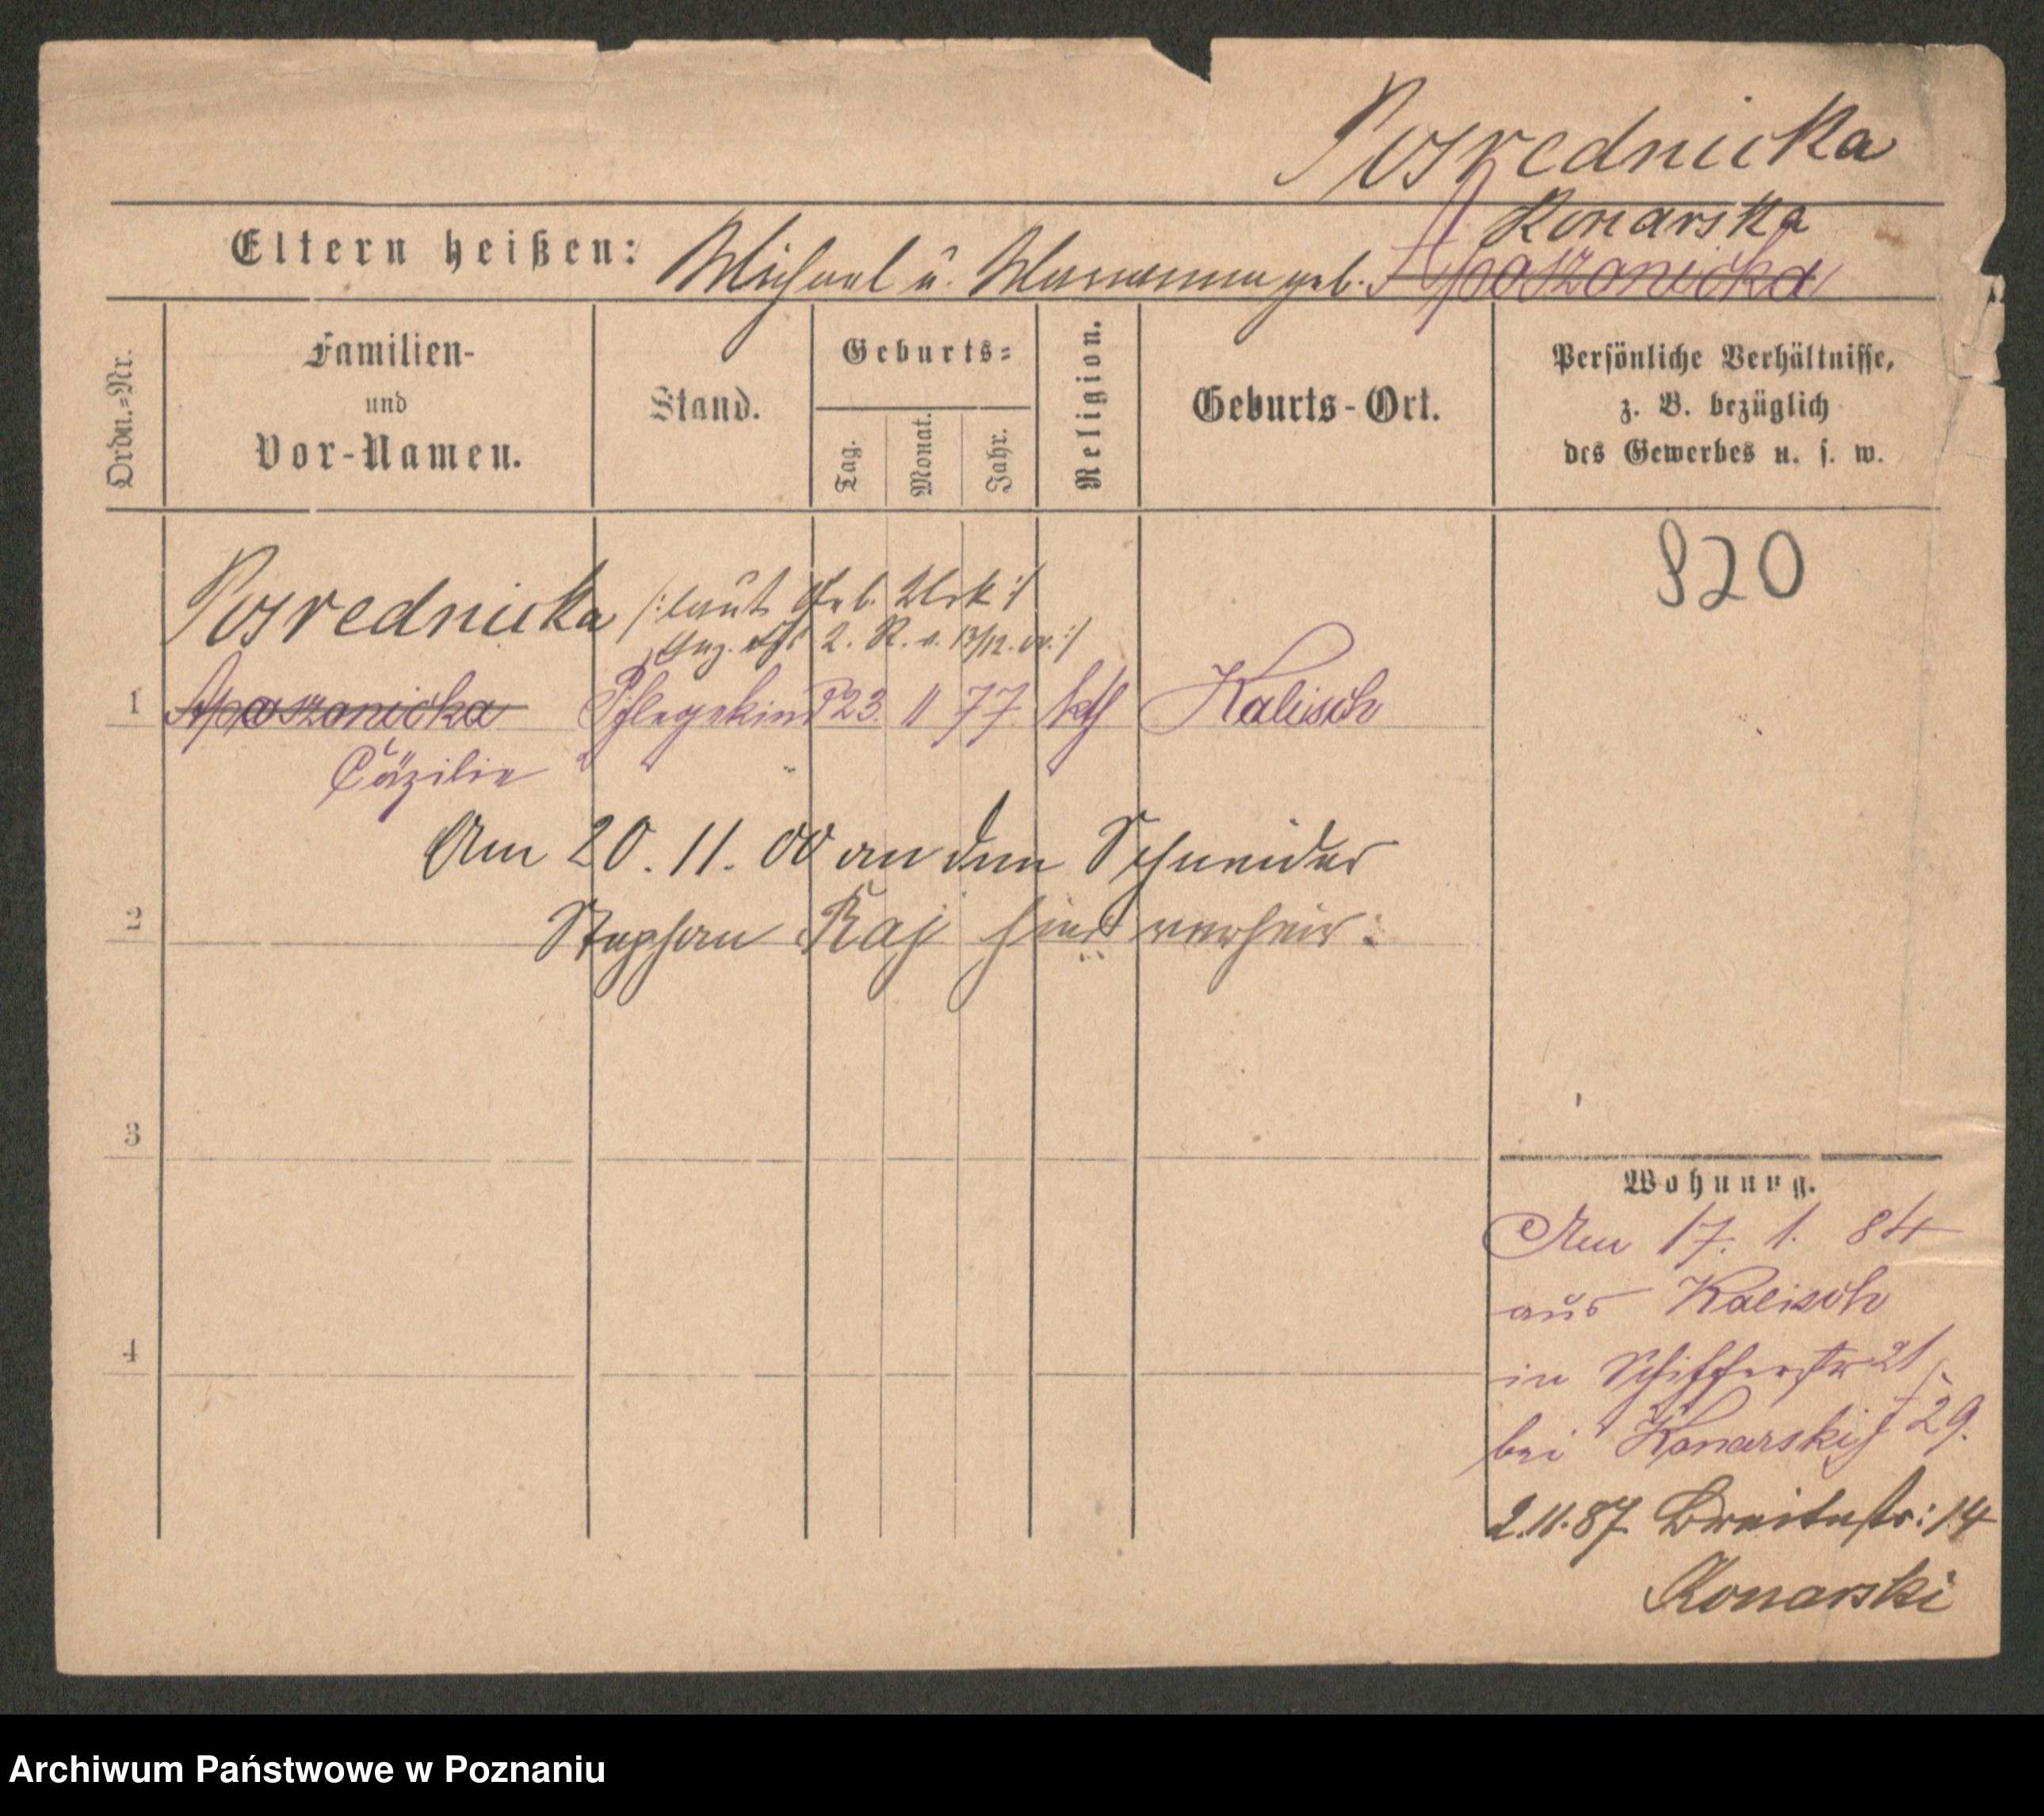 Posrednicka
Konarska
Eltern heißen: Michael u. Marianna geb. Apaszanicka
Ordn.-Nr.
Familien-
und
Vor-Namen.
Stand.
Geburts-
Tag.
Monat.
Jahr.
Religion.
Geburts-Ort.
Persönliche Verhältnisse,
z. B. bezüglich
des Gewerbes u. s. w.
920
Posrednicka /: laut Geb. Urk :/
2. R. v. 13/12. 00. :/
1 Apaszanicka Pflegekind 23. 11 77. kth Kalisch
Cäzilie
Am 20. 11. 00 an den Schneider
2 Stephan Raj hier verheir:
3
4
Wohnung.
Am 17. 1. 84
aus Kalisch
in Schifferstr 21
bei Konarski J 29.
2.11.87 Breitestr: 14
Konarski
Archiwum Państwowe w Poznaniu